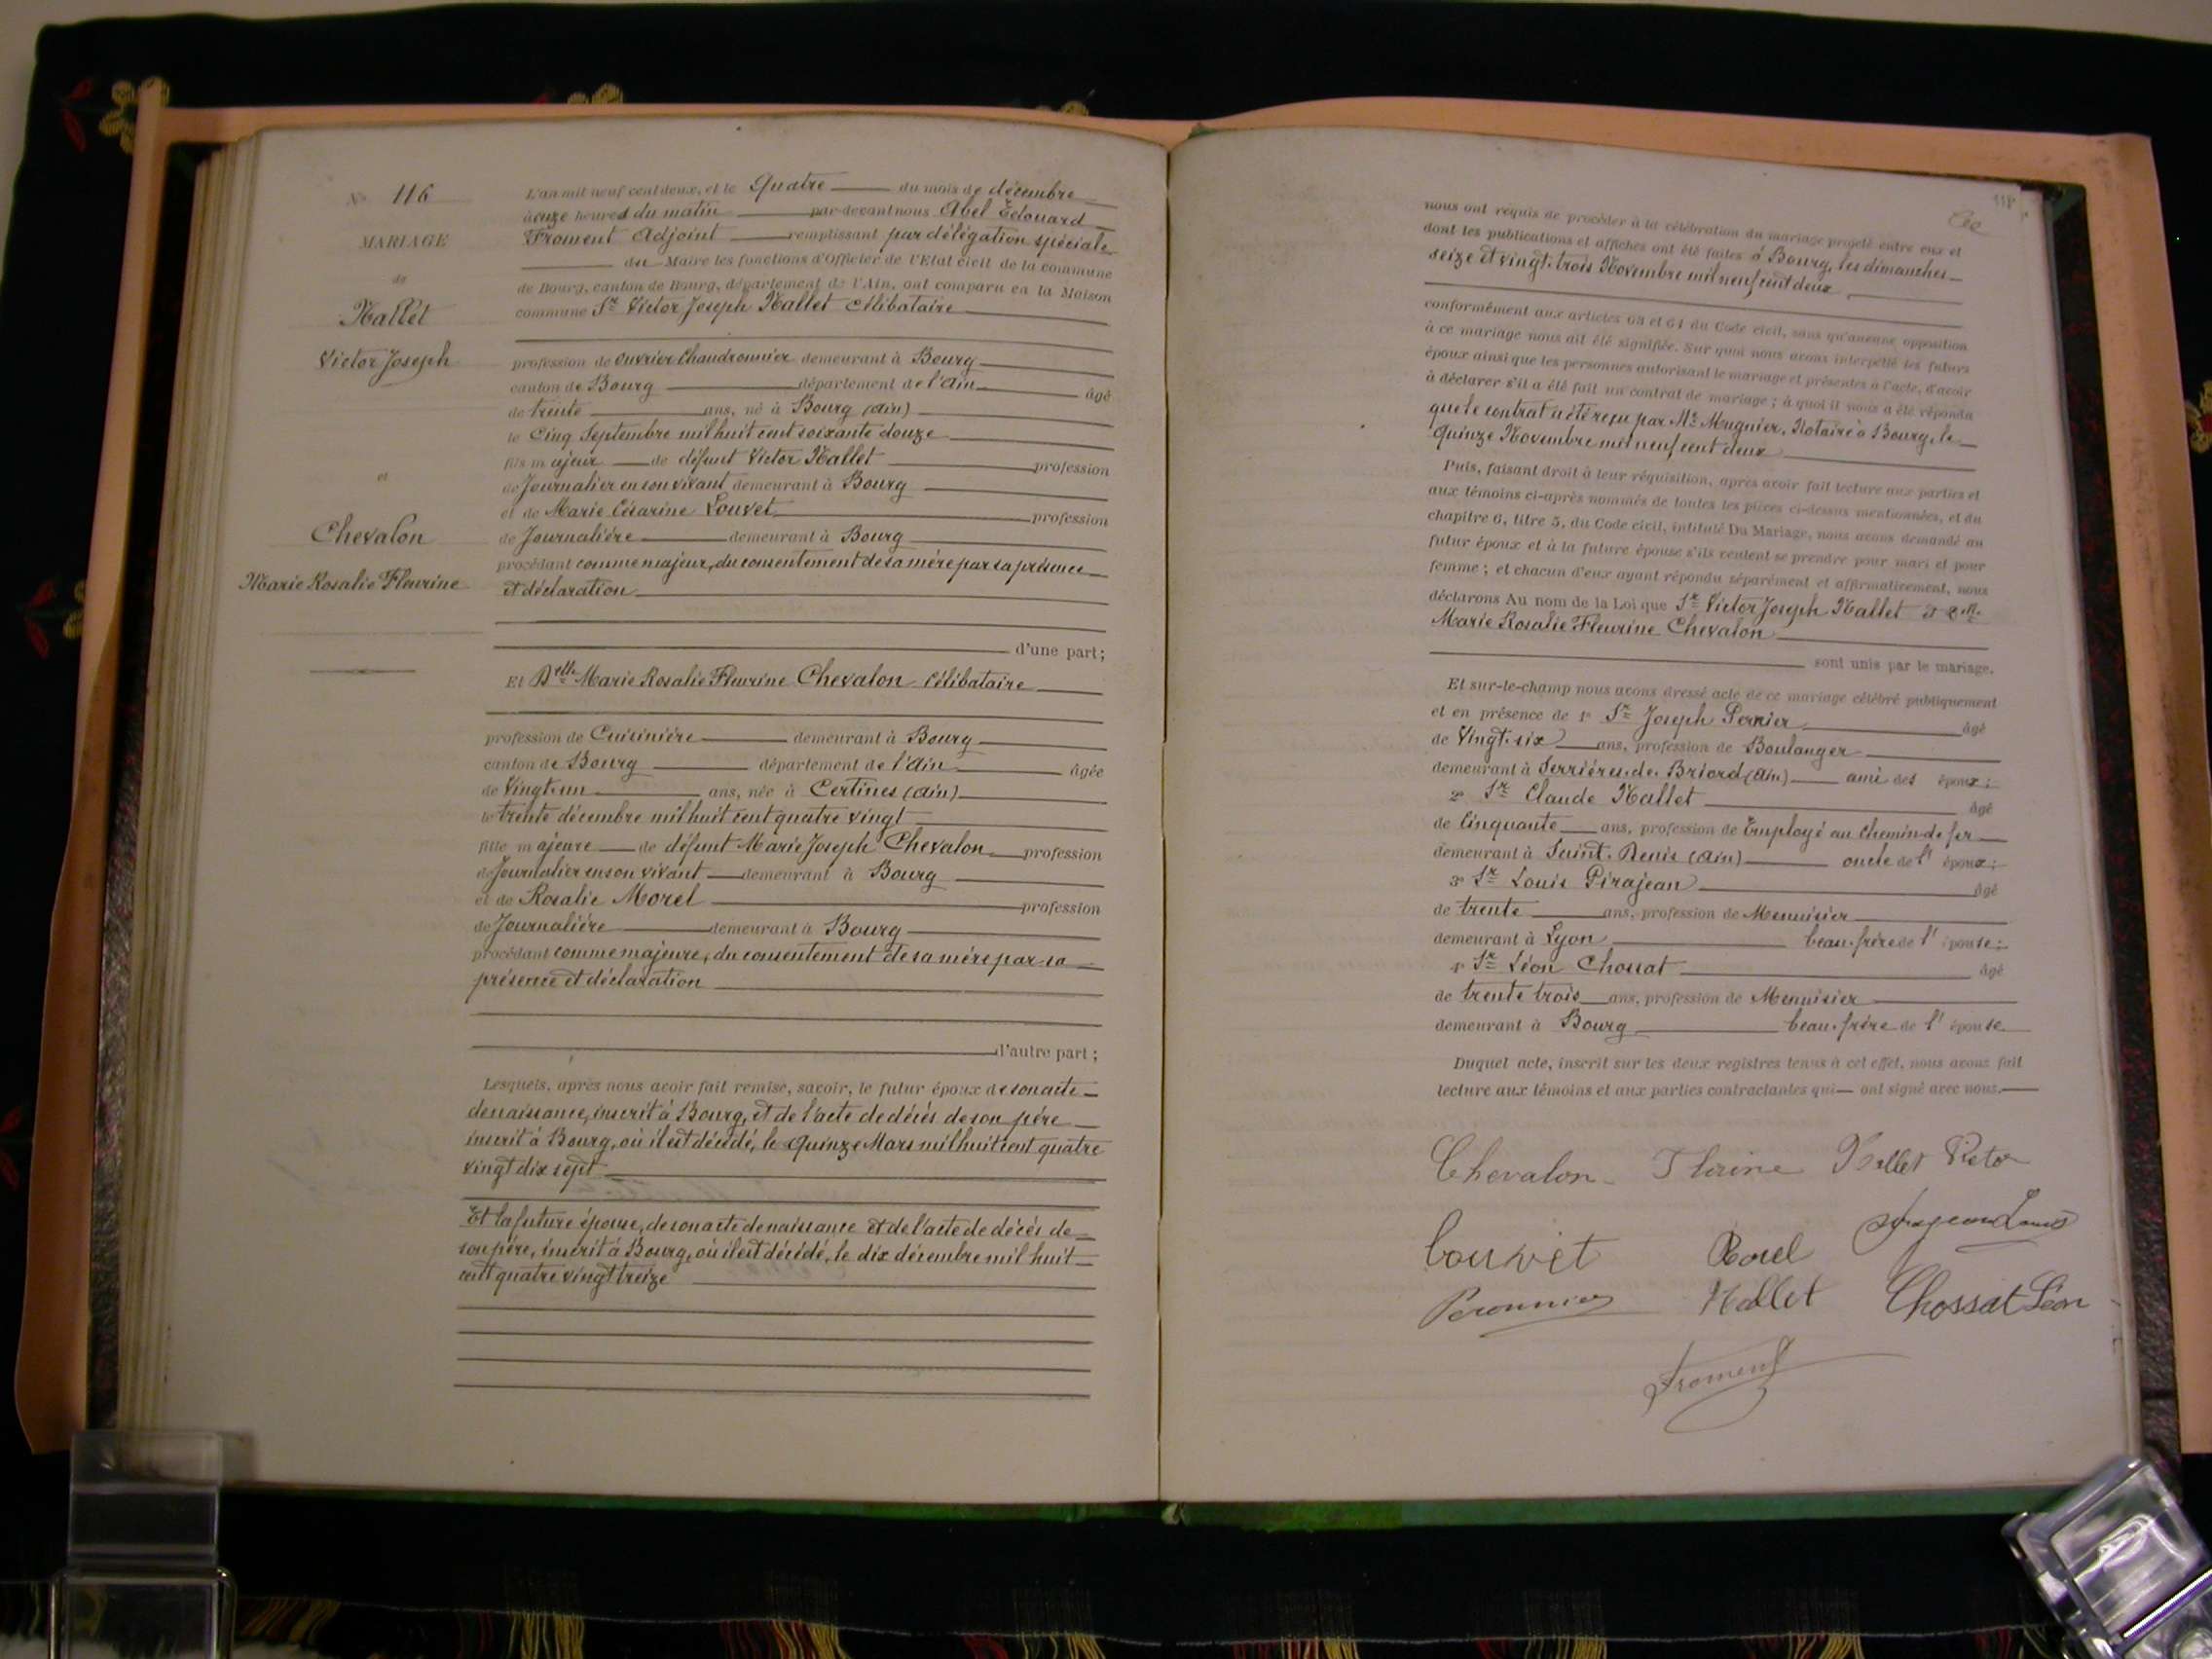 N° 116
MARIAGE
de
Hallet
Victor Joseph
et
Chevalon
Marie Rosalie Fleurine
L'an mil neuf cent deux, et le Quatre du mois de décembre
à onze heures du matin par-devant nous Abel Édouard
Froment Adjoint remplissant par délégation spéciale
du Maire les fonctions d'Officier de l'Etat civil de la commune
de Bourg, canton de Bourg, département de l'Ain, ont comparu en la Maison
commune Sr Victor Joseph Hallet Célibataire
profession de ouvrier Chaudronnier demeurant à Bourg
canton de Bourg département de l'Ain âgé
de trente ans, né à Bourg (Ain)
le Cinq Septembre mil huit cent soixante douze
fils majeur de défunt Victor Hallet profession
de Journalier en son vivant demeurant à Bourg
et de Marie Césarine Louvet profession
de Journalière demeurant à Bourg
procédant comme majeur, du consentement de sa mère par sa présence
et déclaration
d'une part;
Et Delle Marie Rosalie Fleurine Chevalon Célibataire
profession de Cuisinière demeurant à Bourg
canton de Bourg département de l'Ain âgée
de Vingt-un ans, née à Certines (Ain)
le trente décembre mil huit cent quatre vingt
fille majeure de défunt Marie Joseph Chevalon profession
de Journalier en son vivant demeurant à Bourg
et de Rosalie Morel profession
de Journalière demeurant à Bourg
procédant comme majeure, du consentement de sa mère par sa
présence et déclaration
d'autre part;
Lesquels, après nous avoir fait remise, savoir, le futur époux de son acte
de naissance, inscrit à Bourg, et de l'acte de décès de son père
inscrit à Bourg, où il est décédé, le Quinze Mars mil huit cent quatre
vingt dix sept
Et la future épouse, de son acte de naissance et de l'acte de décès de
son père, inscrit à Bourg, où il est décédé, le dix décembre mil huit
cent quatre vingt treize
118
nous ont requis de procéder à la célébration du mariage projeté entre eux et
dont les publications et affiches ont été faites à Bourg, les dimanches
seize et vingt-trois Novembre mil neuf cent deux
conformément aux articles 63 et 64 du Code civil, sans qu'aucune opposition
à ce mariage nous ait été signifiée. Sur quoi nous avons interpellé les futurs
époux ainsi que les personnes autorisant le mariage et présentes à l'acte, d'avoir
à déclarer s'il a été fait un contrat de mariage; à quoi il nous a été répondu
que le contrat a été reçu par Me Mugnier, Notaire à Bourg, le
Quinze Novembre mil neuf cent deux
Puis, faisant droit à leur réquisition, après avoir fait lecture aux parties et
aux témoins ci-après nommés de toutes les pièces ci-dessus mentionnées, et du
chapitre 6, titre 5, du Code civil, intitulé Du Mariage, nous avons demandé au
futur époux et à la future épouse s'ils veulent se prendre pour mari et pour
femme; et chacun d'eux ayant répondu séparément et affirmativement, nous
déclarons Au nom de la Loi que Sr Victor Joseph Hallet et Delle
Marie Rosalie Fleurine Chevalon
sont unis par le mariage.
Et sur-le-champ nous avons dressé acte de ce mariage célébré publiquement
et en présence de 1° Sr Joseph âgé
de Vingt-six ans, profession de Boulanger
demeurant à Serrières-de-Briord (Ain) ami des époux;
2° Sr Claude Hallet âgé
de Cinquante ans, profession de Employé au chemin de fer
demeurant à Saint-Denis (Ain) oncle de l'époux;
3° Sr Louis Pirajean âgé
de trente ans, profession de Menuisier
demeurant à Lyon beau-frère de l'épouse;
4° Sr Léon Chossat âgé
de trente trois ans, profession de Menuisier
demeurant à Bourg beau-frère de l'épouse
Duquel acte, inscrit sur les deux registres tenus à cet effet, nous avons fait
lecture aux témoins et aux parties contractantes qui ont signé avec nous.
Chevalon Hallet
Louvet
Hallet Chossat Léon
Froment